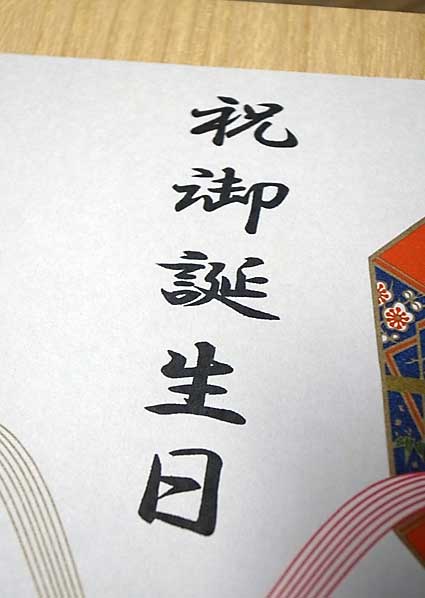 祝御誕生日